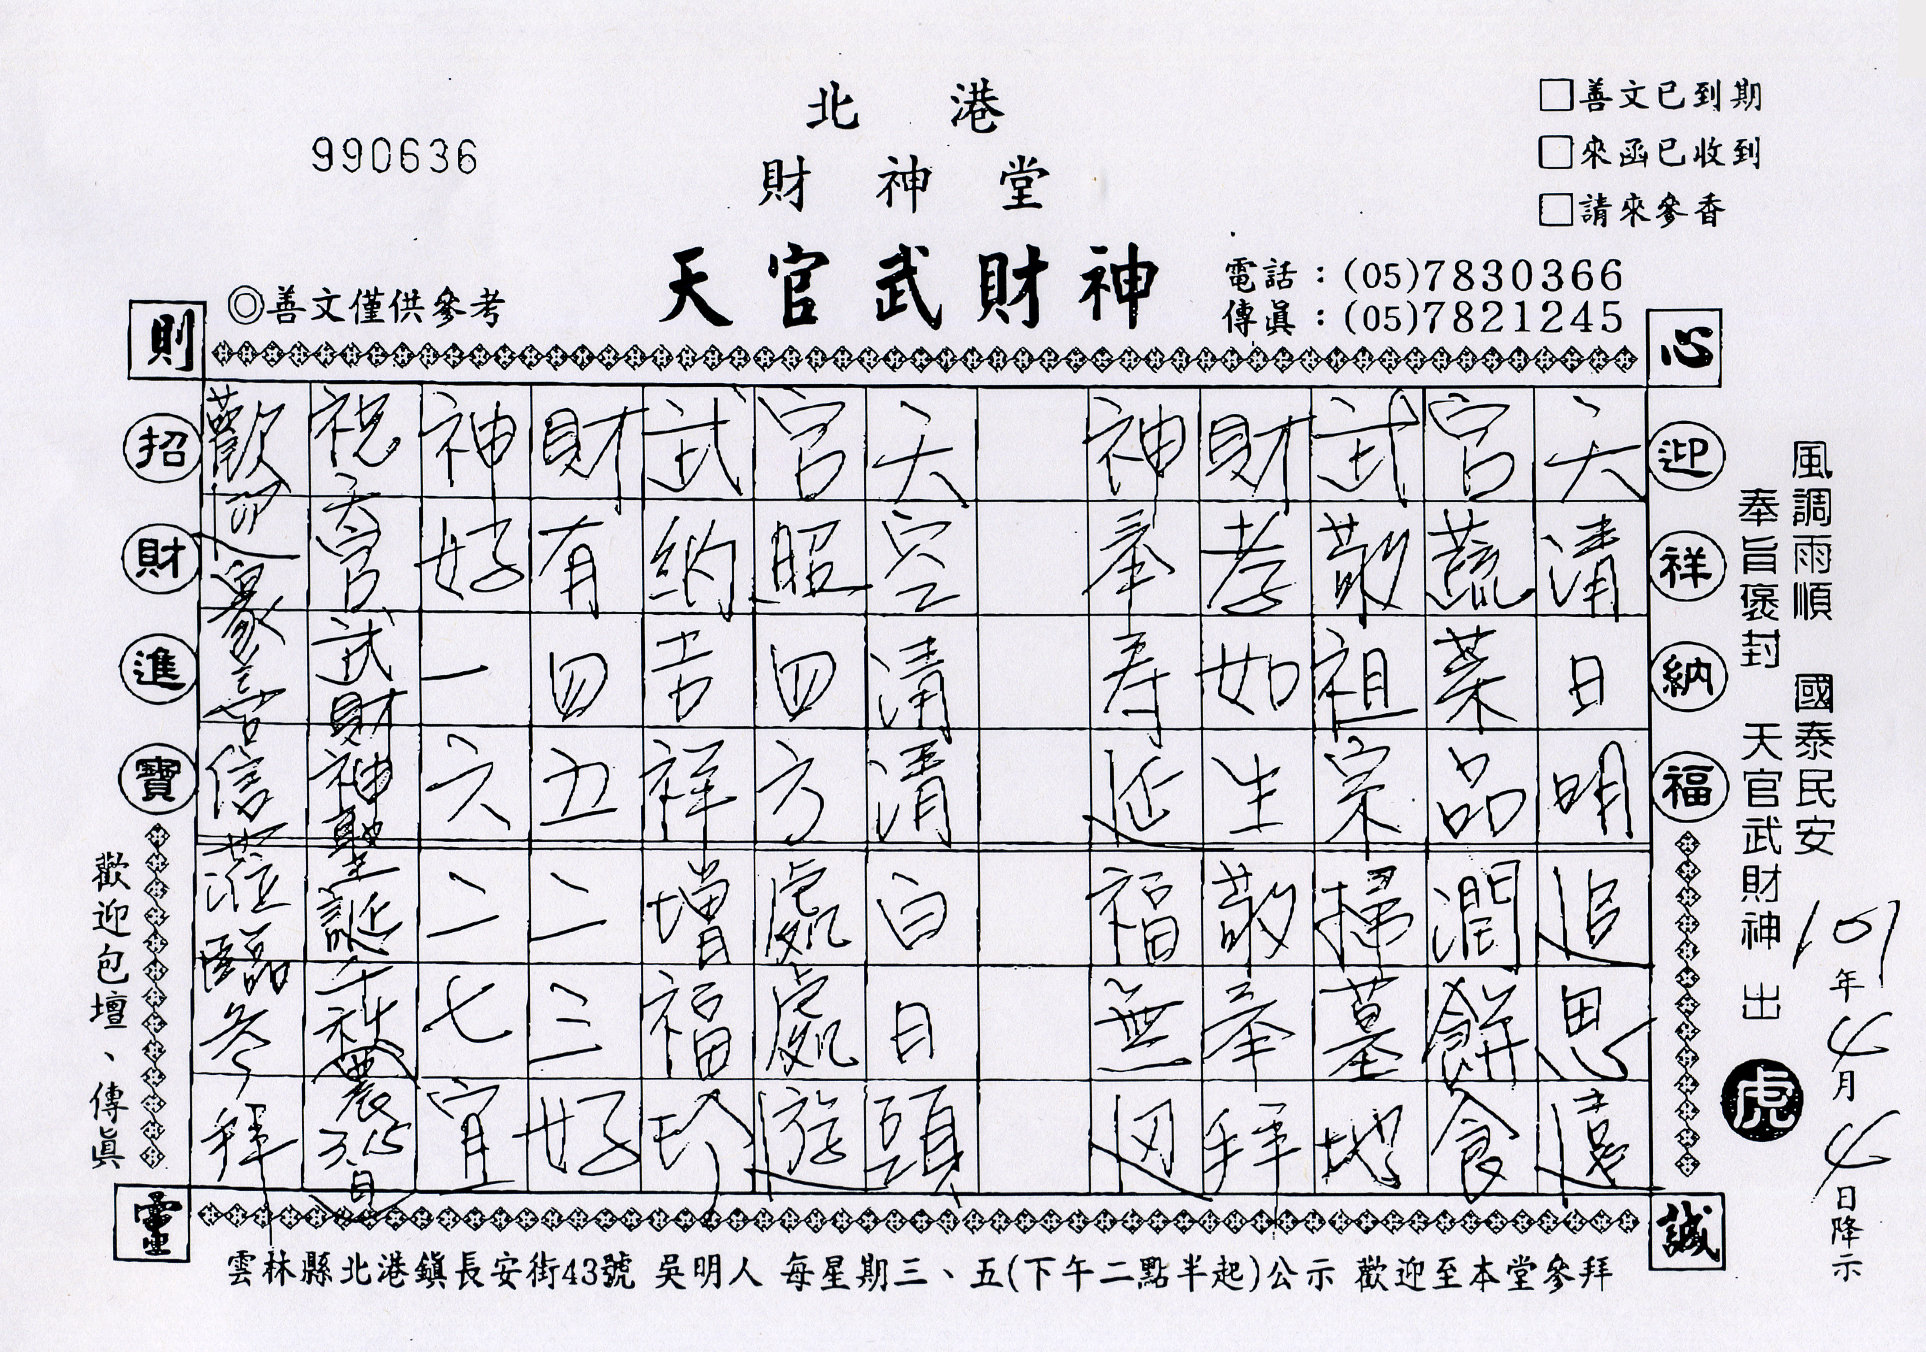 990636
北港
財神堂
天官武財神
□善文已到期
□來函已收到
□請來參香
◎善文僅供參考
電話：(05)7830366
傳眞：(05)7821245
心誠則靈
迎祥納福
招財進寶
風調雨順 國泰民安
奉旨褒封 天官武財神 出
虎
101年4月4日降示
天清日明追思遠
官蔬菜品潤餅食
武敬祖宗掃墓地
財孝如生敬奉拜
神奉寿延福無
天空清清白日頭
官昭四方處處遊
武納吉祥增福
財有四五二三好
神好一六二七宜
祝天官武財神聖誕千秋
歡迎眾善信蒞臨參拜
歡迎包壇、傳眞
雲林縣北港鎮長安街43號 吳明人 每星期三、五(下午二點半起)公示 歡迎至本堂參拜